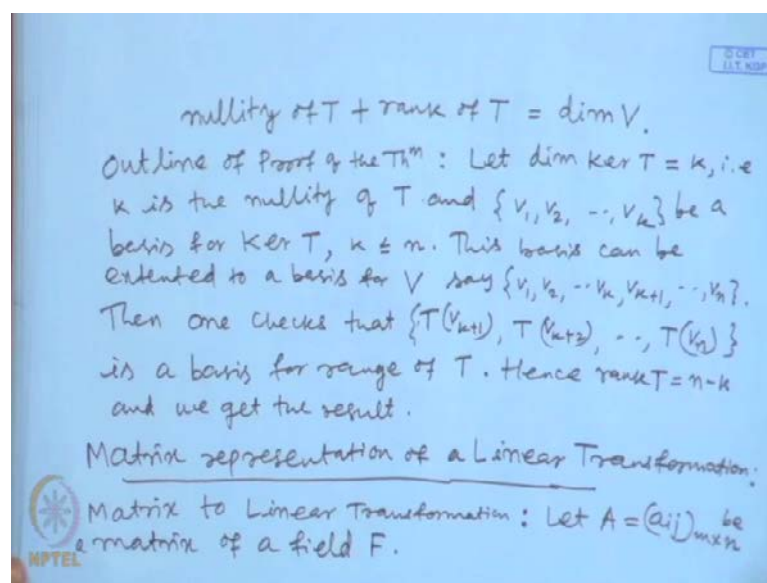 © CET
I.I.T. KGP
nullity of T + rank of T = dim V.
Outline of Proof of the Thᵐ : Let dim Ker T = k, i.e
k is the nullity of T and {v₁, v₂, --, vₖ} be a
basis for Ker T, k ≤ n. This basis can be
extented to a basis for V say {v₁, v₂, -- vₖ, vₖ₊₁, --, vₙ}.
Then one checks that {T(vₖ₊₁), T(vₖ₊₂), --, T(vₙ)}
is a basis for range of T. Hence rank T = n-k
and we get the result.
Matrix representation of a Linear Transformation:
Matrix to Linear Transformation : Let A = (aij)ₘₓₙ be
a matrix of a field F.
NPTEL